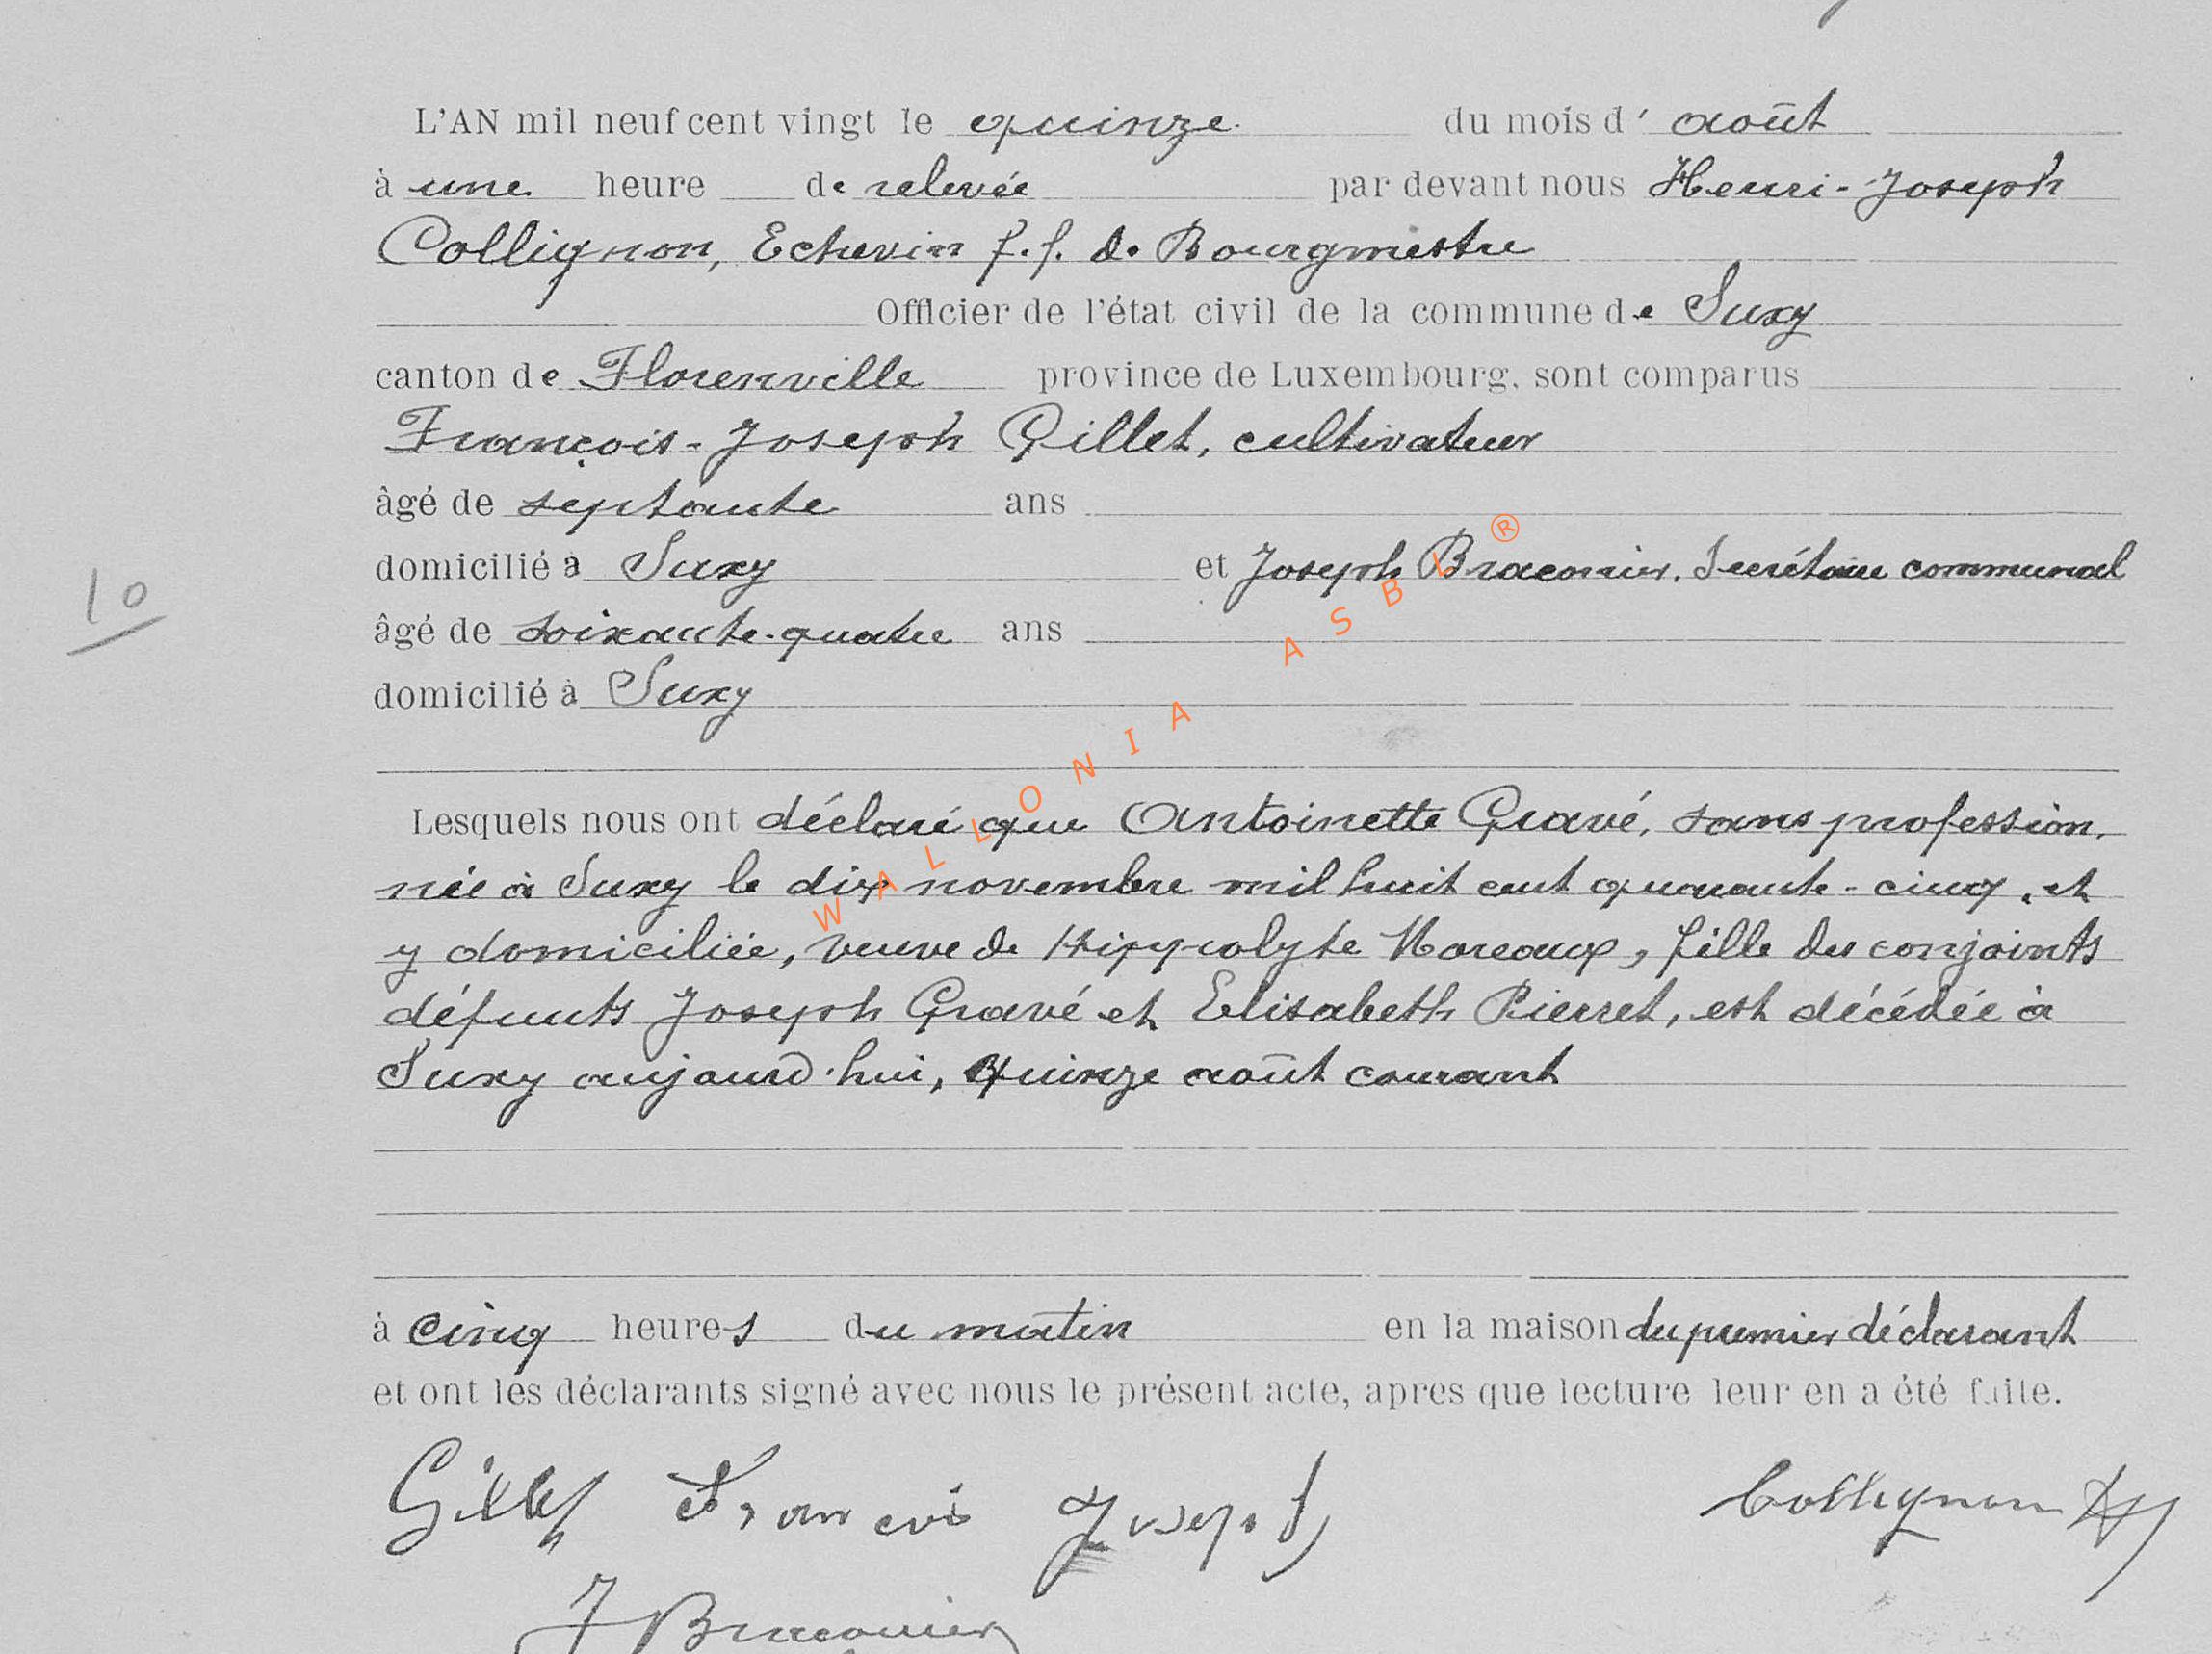 L'AN mil neuf cent vingt le quinze du mois d' août
à une heure de relevée par devant nous Henri-Joseph
Collignon, Echevin f.f. de Bourgmestre
Officier de l'état civil de la commune de Suxy
canton de Florenville province de Luxembourg, sont comparus
François-Joseph Gillet, cultivateur
âgé de septante ans
domicilié à Suxy et Joseph Braconier, Secrétaire communal
10
âgé de soixante-quatre ans
domicilié à Suxy
WALLONIA ASBL ®
Lesquels nous ont déclaré que Antoinette Gravé, sans profession,
née à Suxy le dix novembre mil huit cent quarante-cinq, et
y domiciliée, veuve de Hippolyte Mareaux, fille des conjoints
défunts Joseph Gravé et Elisabeth Pierret, est décédée à
Suxy aujourd'hui, quinze août courant
à cinq heures du matin en la maison du premier déclarant
et ont les déclarants signé avec nous le présent acte, apres que lecture leur en a été faite.
Gillet François Joseph Collignon HJ
J Braconier